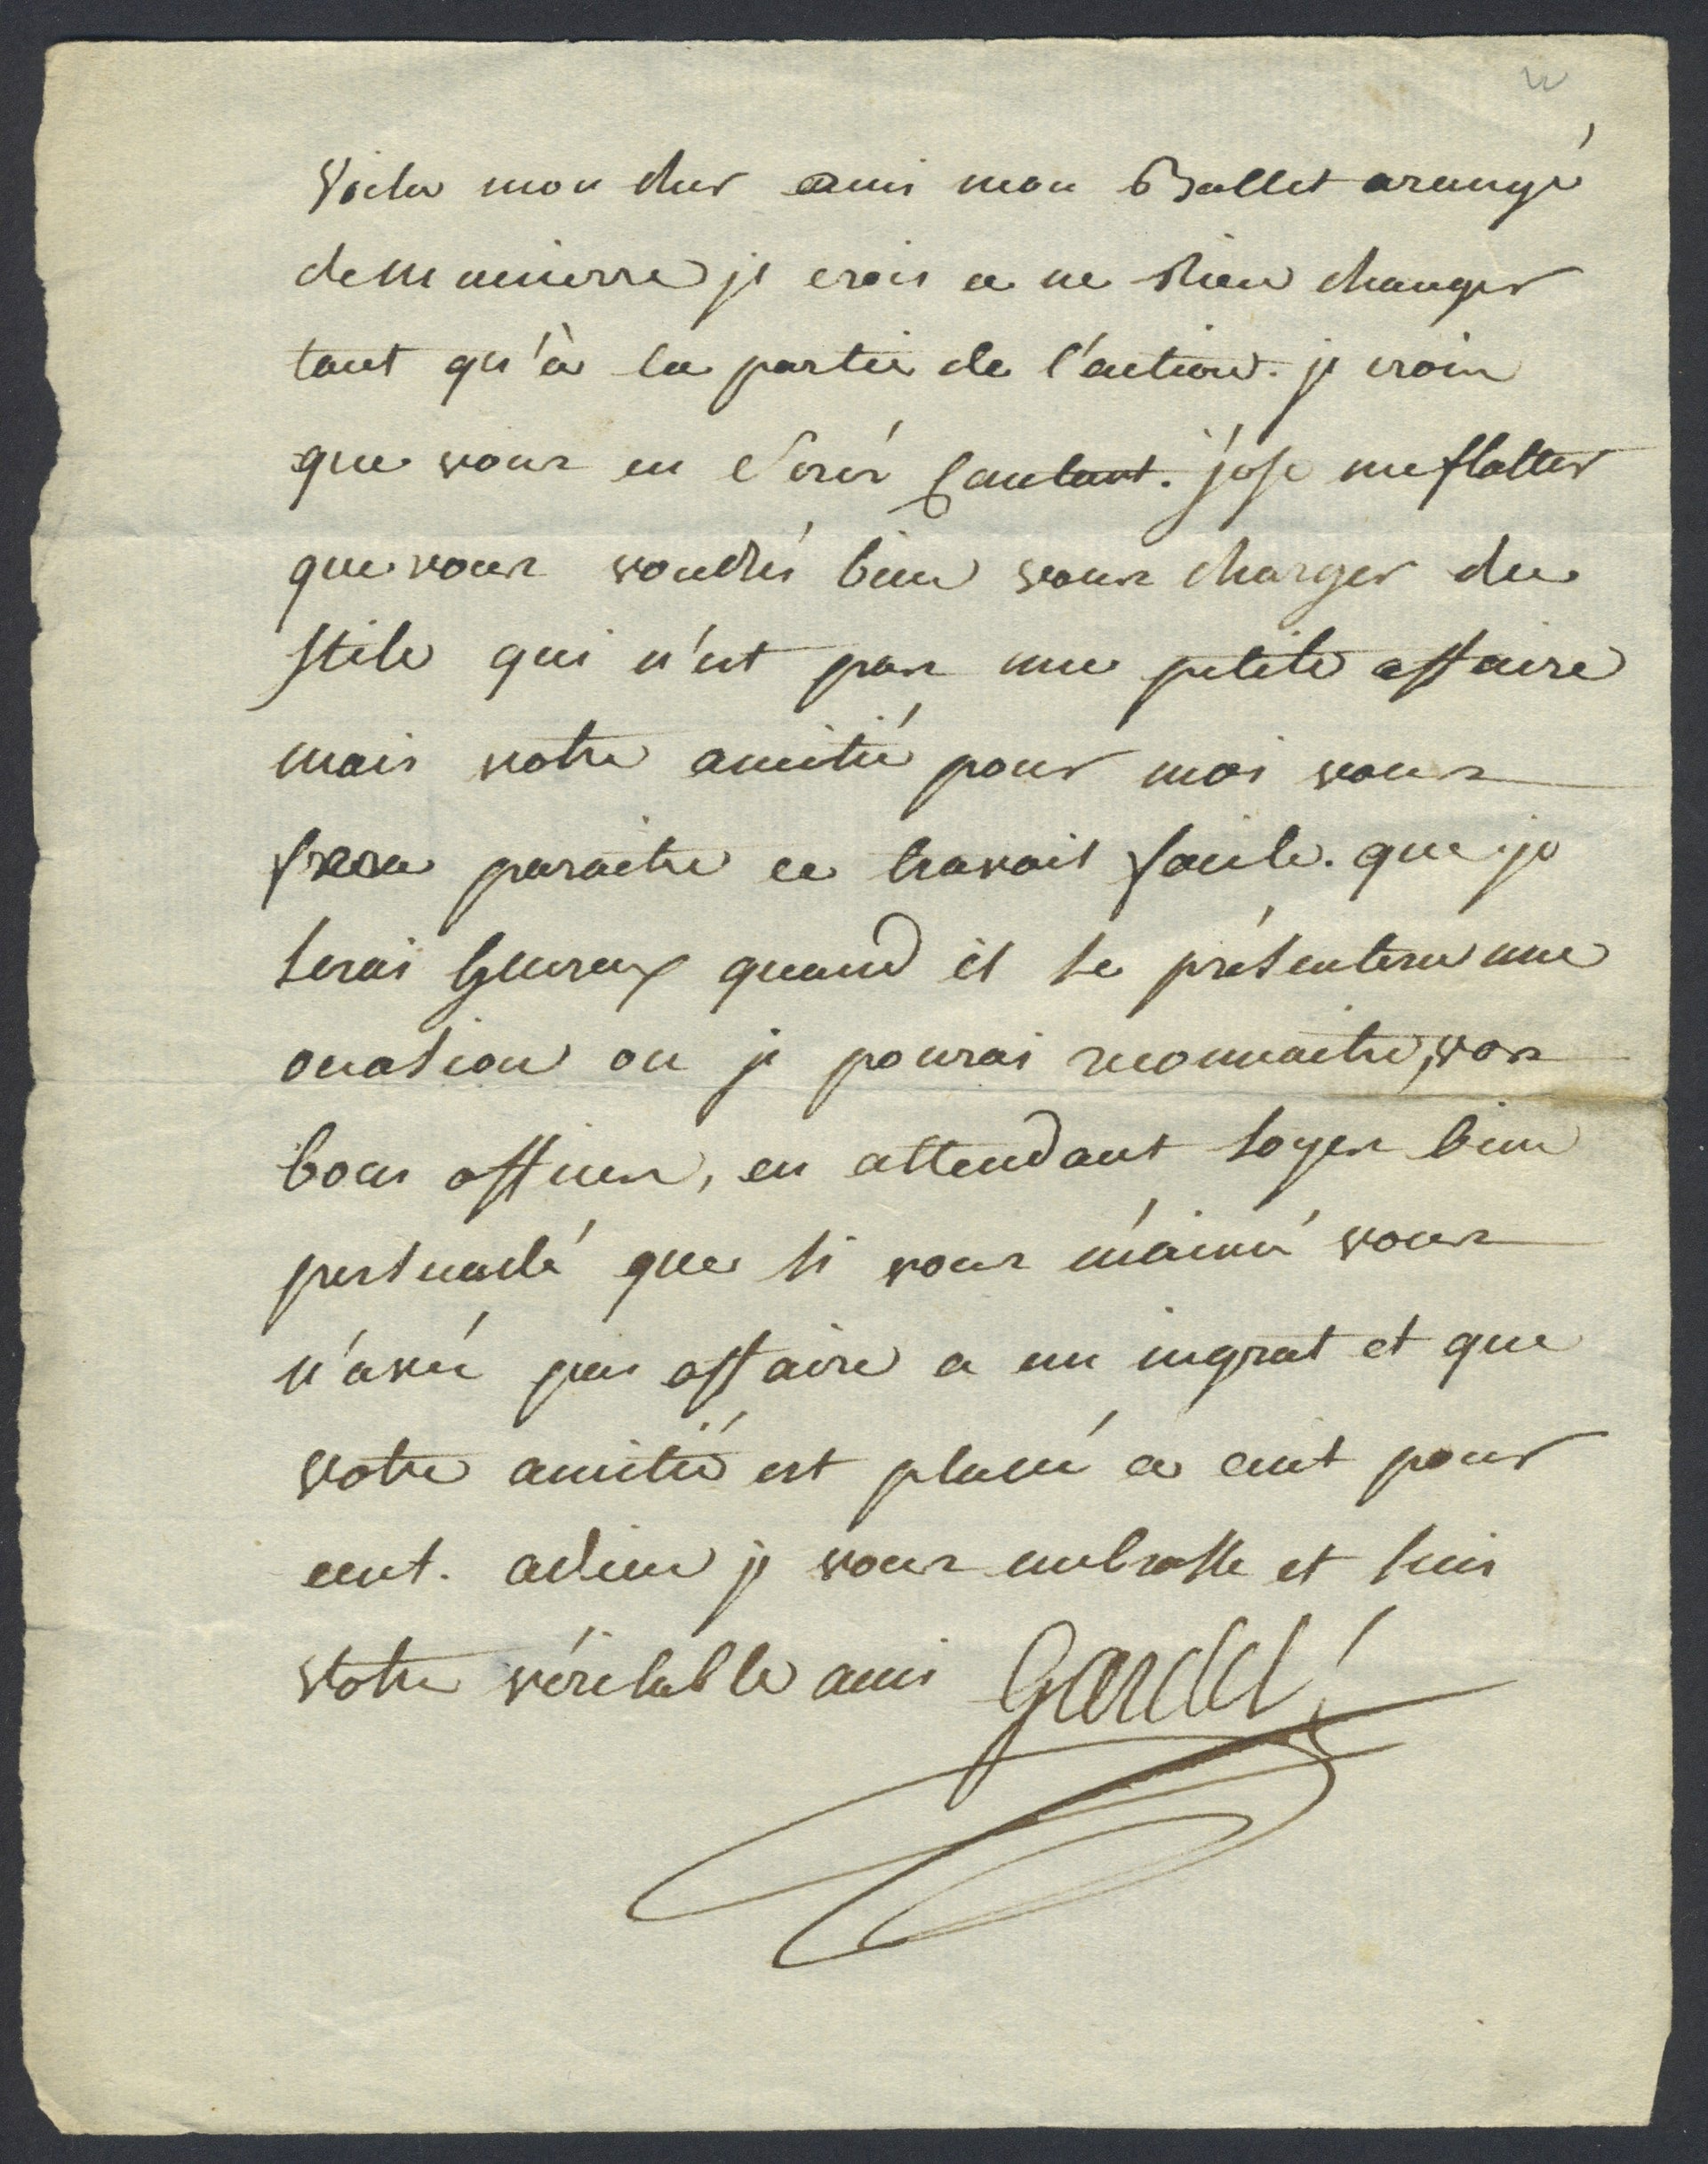 Voila mon cher ami mon Ballet arangé
de manierre je crois a ne Rien changer
tant qu'à la partie de l'action. je crois
que vous en Serés Contant. j'ose me flatter
que vous voudrés bien vous charger du
stile qui n'est pas une petite affaire
mais votre amitié pour moi vous
fera paraitre ce travail facile. que je
serai heureux quand il se présentera une
ocasion ou je pourai reconnaitre, vos
bons offices, en attendant soyes bien
persuadé que si vous m'aimé vous
n'avés pas affaire a un ingrat et que
votre amitié est placée a cent pour
cent. adieu je vous embrasse et suis
votre véritable ami Gardel